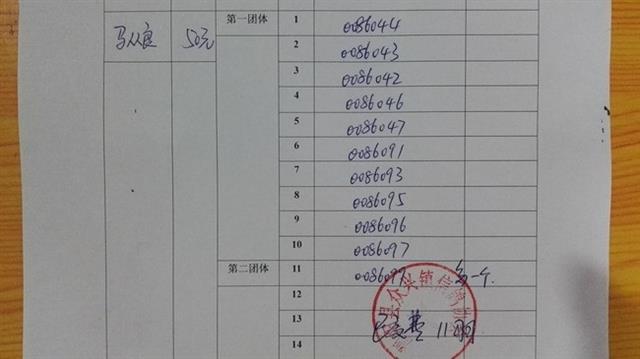 第一团体 1 0086044
马从良 50元
2 0086043
3 0086042
4 0086046
5 0086047
6 0086091
7 0086093
8 0086095
9 0086096
10 0086097
第二团体 11 0086099 多一个.
12
13
14